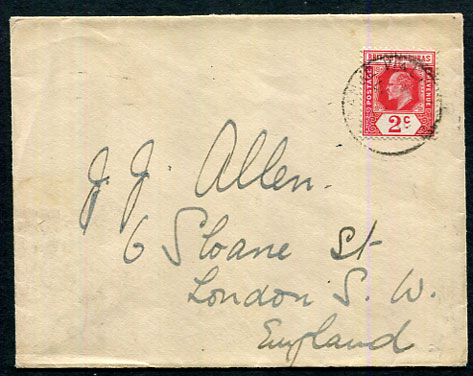 POSTAGE
REVENUE
2c
J. J. Allen.
6 Sloane St
London S. W.
England